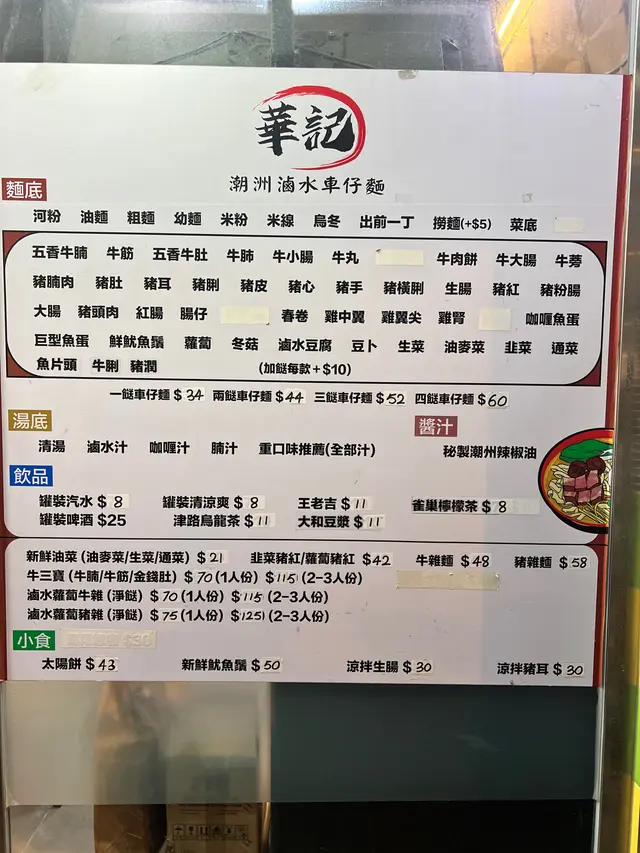 華記
潮洲滷水車仔麵
麵底
河粉 油麵 粗麵 幼麵 米粉 米線 烏冬 出前一丁 撈麵(+$5) 菜底
五香牛腩 牛筋 五香牛肚 牛肺 牛小腸 牛丸 牛肉餅 牛大腸 牛蒡
豬腩肉 豬肚 豬耳 豬脷 豬皮 豬心 豬手 豬橫脷 生腸 豬紅 豬粉腸
大腸 豬頭肉 紅腸 腸仔 春卷 雞中翼 雞翼尖 雞腎 咖喱魚蛋
巨型魚蛋 鮮魷魚鬚 蘿蔔 冬菇 滷水豆腐 豆卜 生菜 油麥菜 韭菜 通菜
魚片頭 牛脷 豬潤 (加餸每款+$10)
一餸車仔麵 $34 兩餸車仔麵 $44 三餸車仔麵 $52 四餸車仔麵 $60
湯底 醬汁
清湯 滷水汁 咖喱汁 腩汁 重口味推薦(全部汁) 秘製潮州辣椒油
飲品
罐裝汽水 $8 罐裝清涼爽 $8 王老吉 $11 雀巢檸檬茶 $8
罐裝啤酒 $25 津路烏龍茶 $11 大和豆漿 $11
新鮮油菜 (油麥菜/生菜/通菜) $21 韭菜豬紅/蘿蔔豬紅 $42 牛雜麵 $48 豬雜麵 $58
牛三寶 (牛腩/牛筋/金錢肚) $70 (1人份) $115 (2-3人份)
滷水蘿蔔牛雜 (淨餸) $70 (1人份) $115 (2-3人份)
滷水蘿蔔豬雜 (淨餸) $75 (1人份) $125 (2-3人份)
小食
太陽餅 $43 新鮮魷魚鬚 $50 涼拌生腸 $30 涼拌豬耳 $30